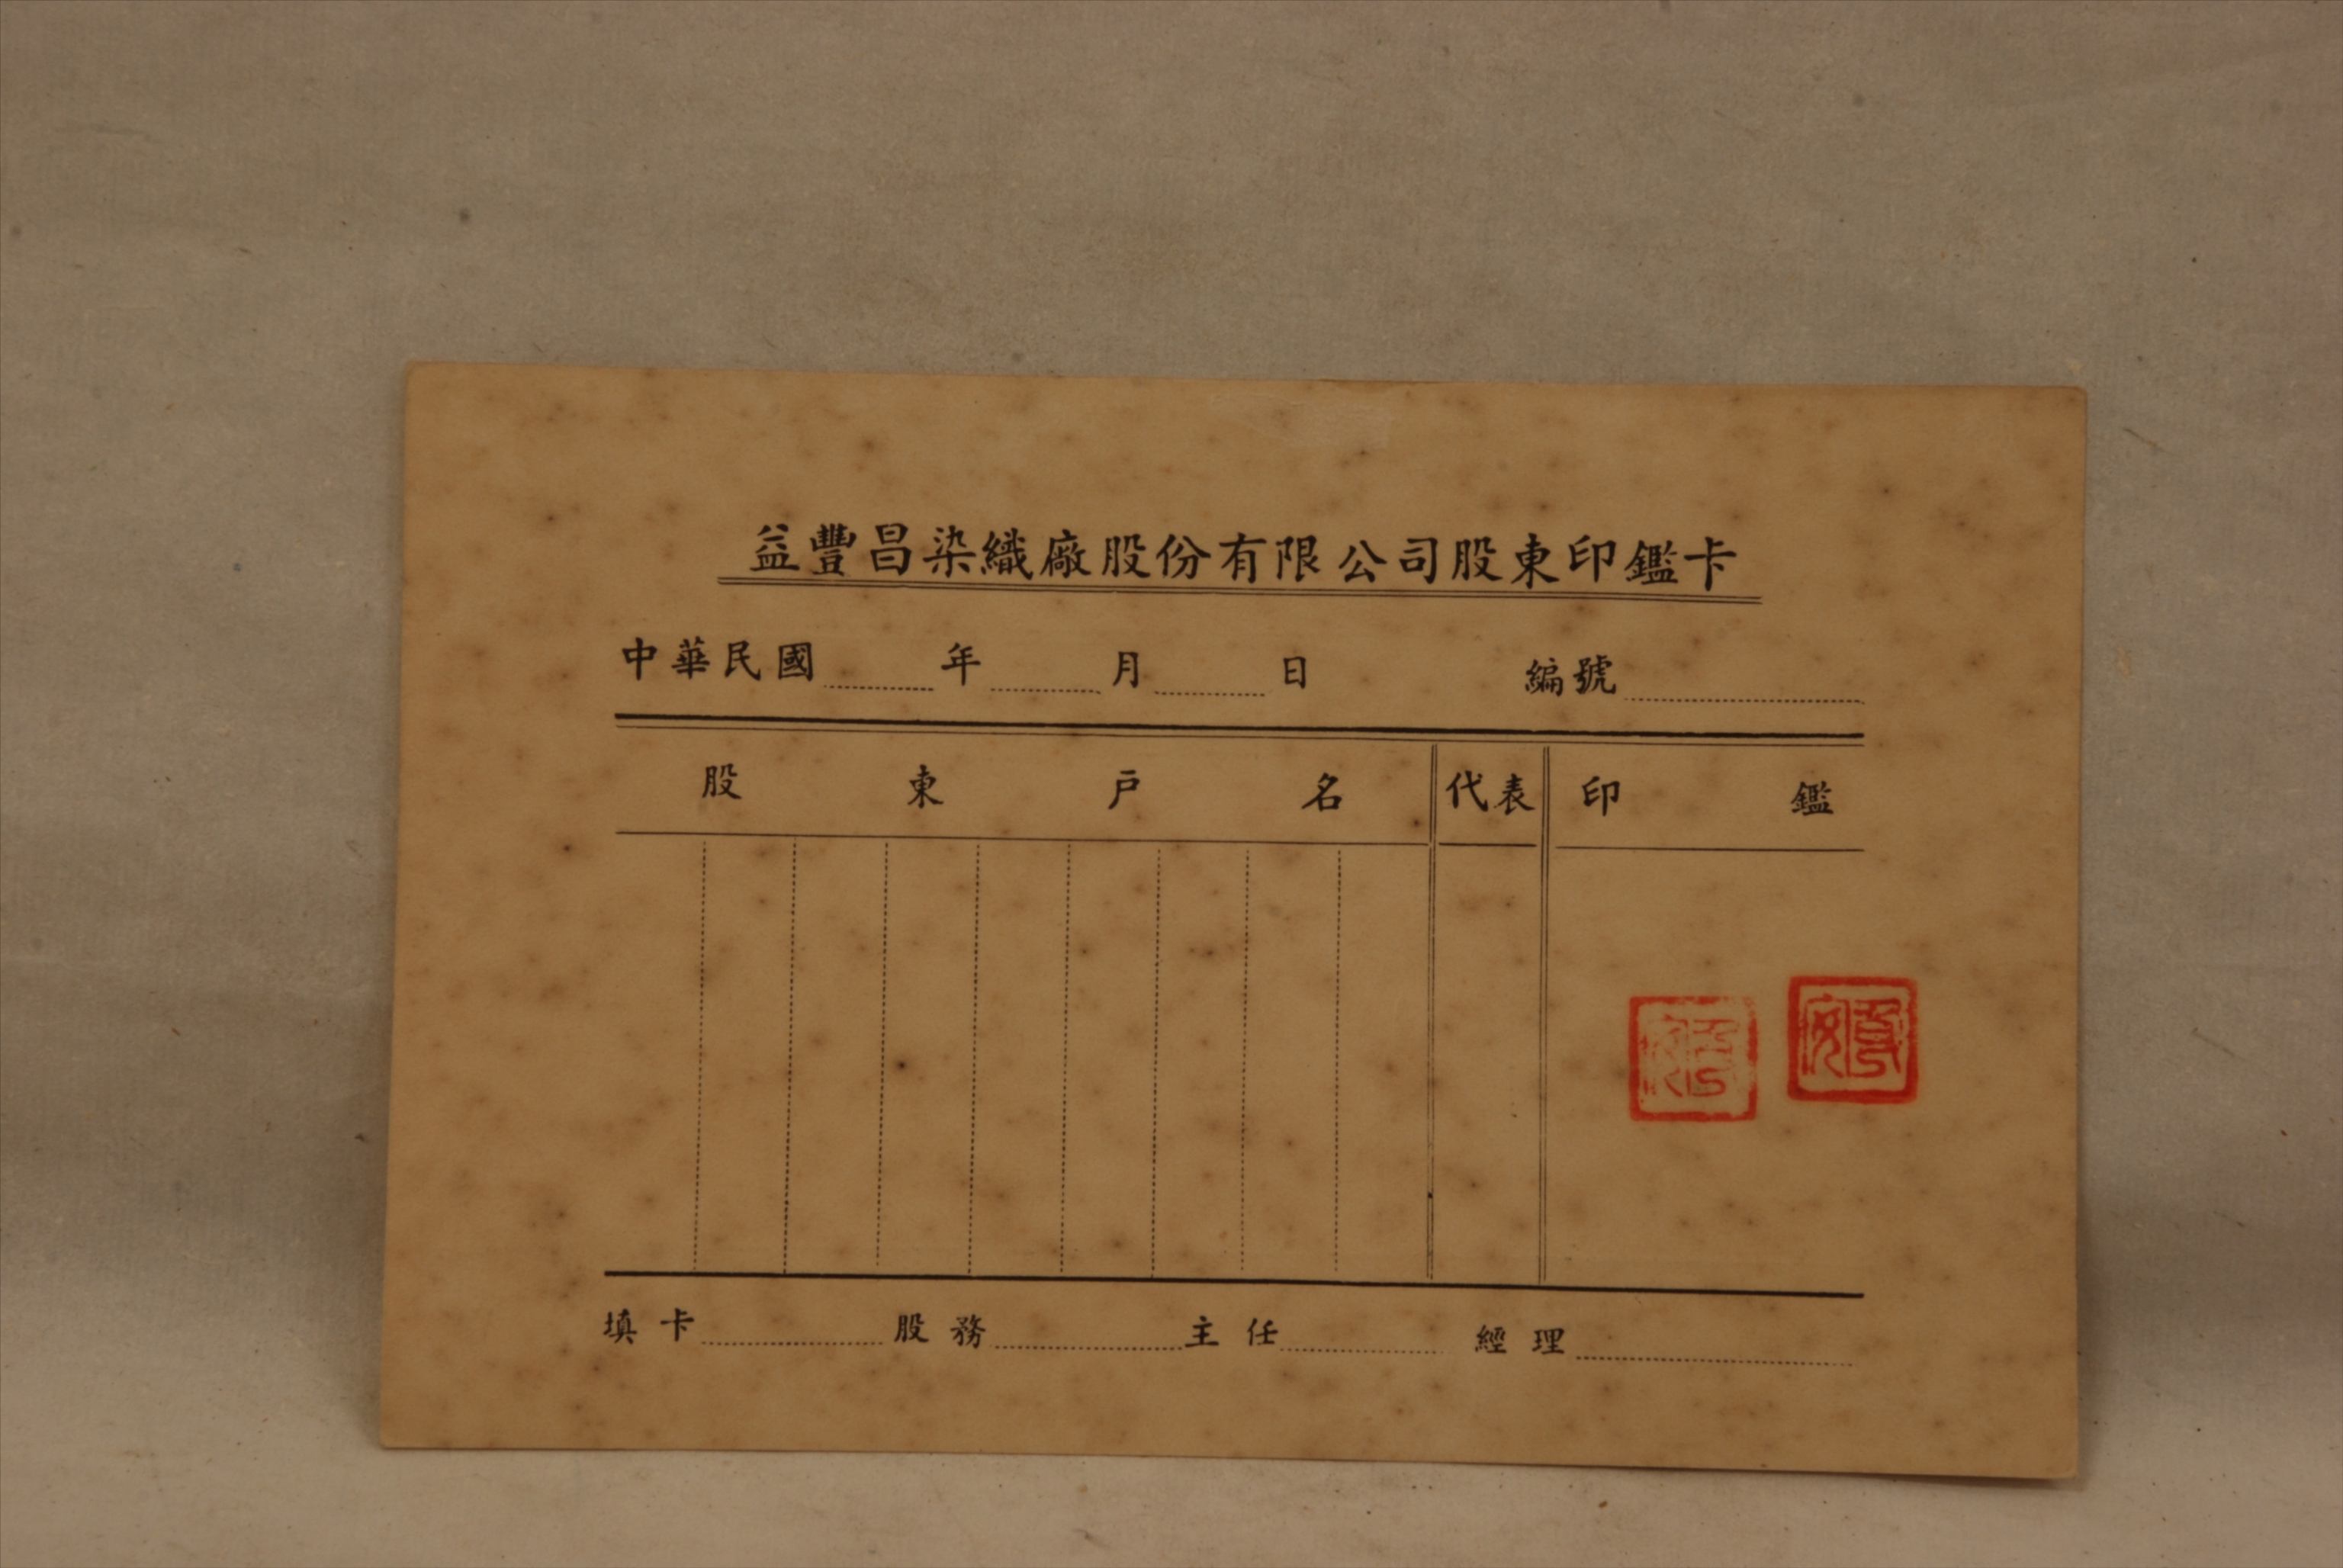 益豐昌染織廠股份有限公司股東印鑑卡
中華民國 年 月 日 編號
股東戶名 代表 印鑑
填卡 股務 主任 經理